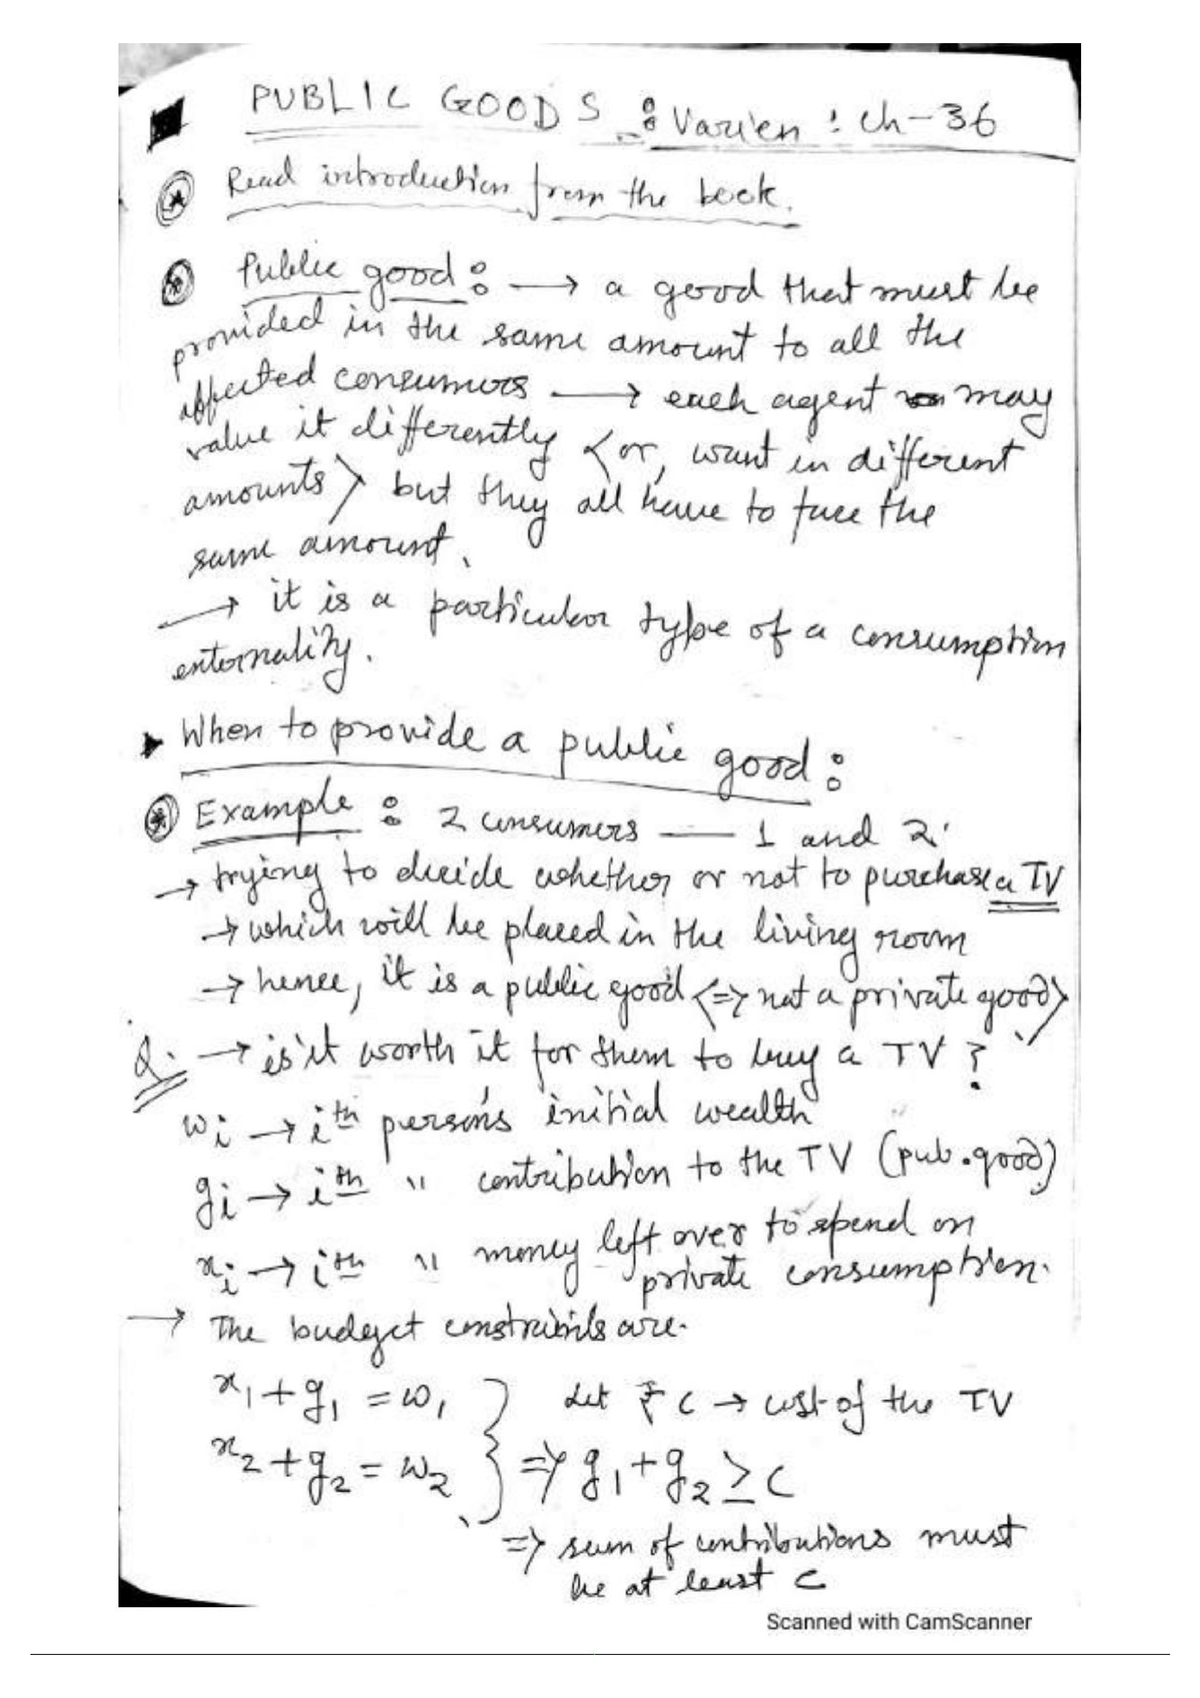 PUBLIC GOODS : Varien : ch-36
Read introduction from the book.
Public good : → a good that must be
provided in the same amount to all the
affected consumers → each agent may
value it differently <or, want in different
amounts> but they all have to face the
same amount.
→ it is a particular type of a consumption
externality.
When to provide a public good :
Example : 2 consumers — 1 and 2.
→ trying to decide whether or not to purchase a TV
→ which will be placed in the living room
→ hence, it is a public good <=> not a private good>
Q. → is it worth it for them to buy a TV ?
wi → ith person's initial wealth
gi → ith " contribution to the TV (pub. good)
xi → ith " money left over to spend on
private consumption.
→ The budget constraints are.
x1 + g1 = w1 } Let ₹ c → cost of the TV
x2 + g2 = w2 } => g1 + g2 ≥ c
=> sum of contributions must
be at least c
Scanned with CamScanner